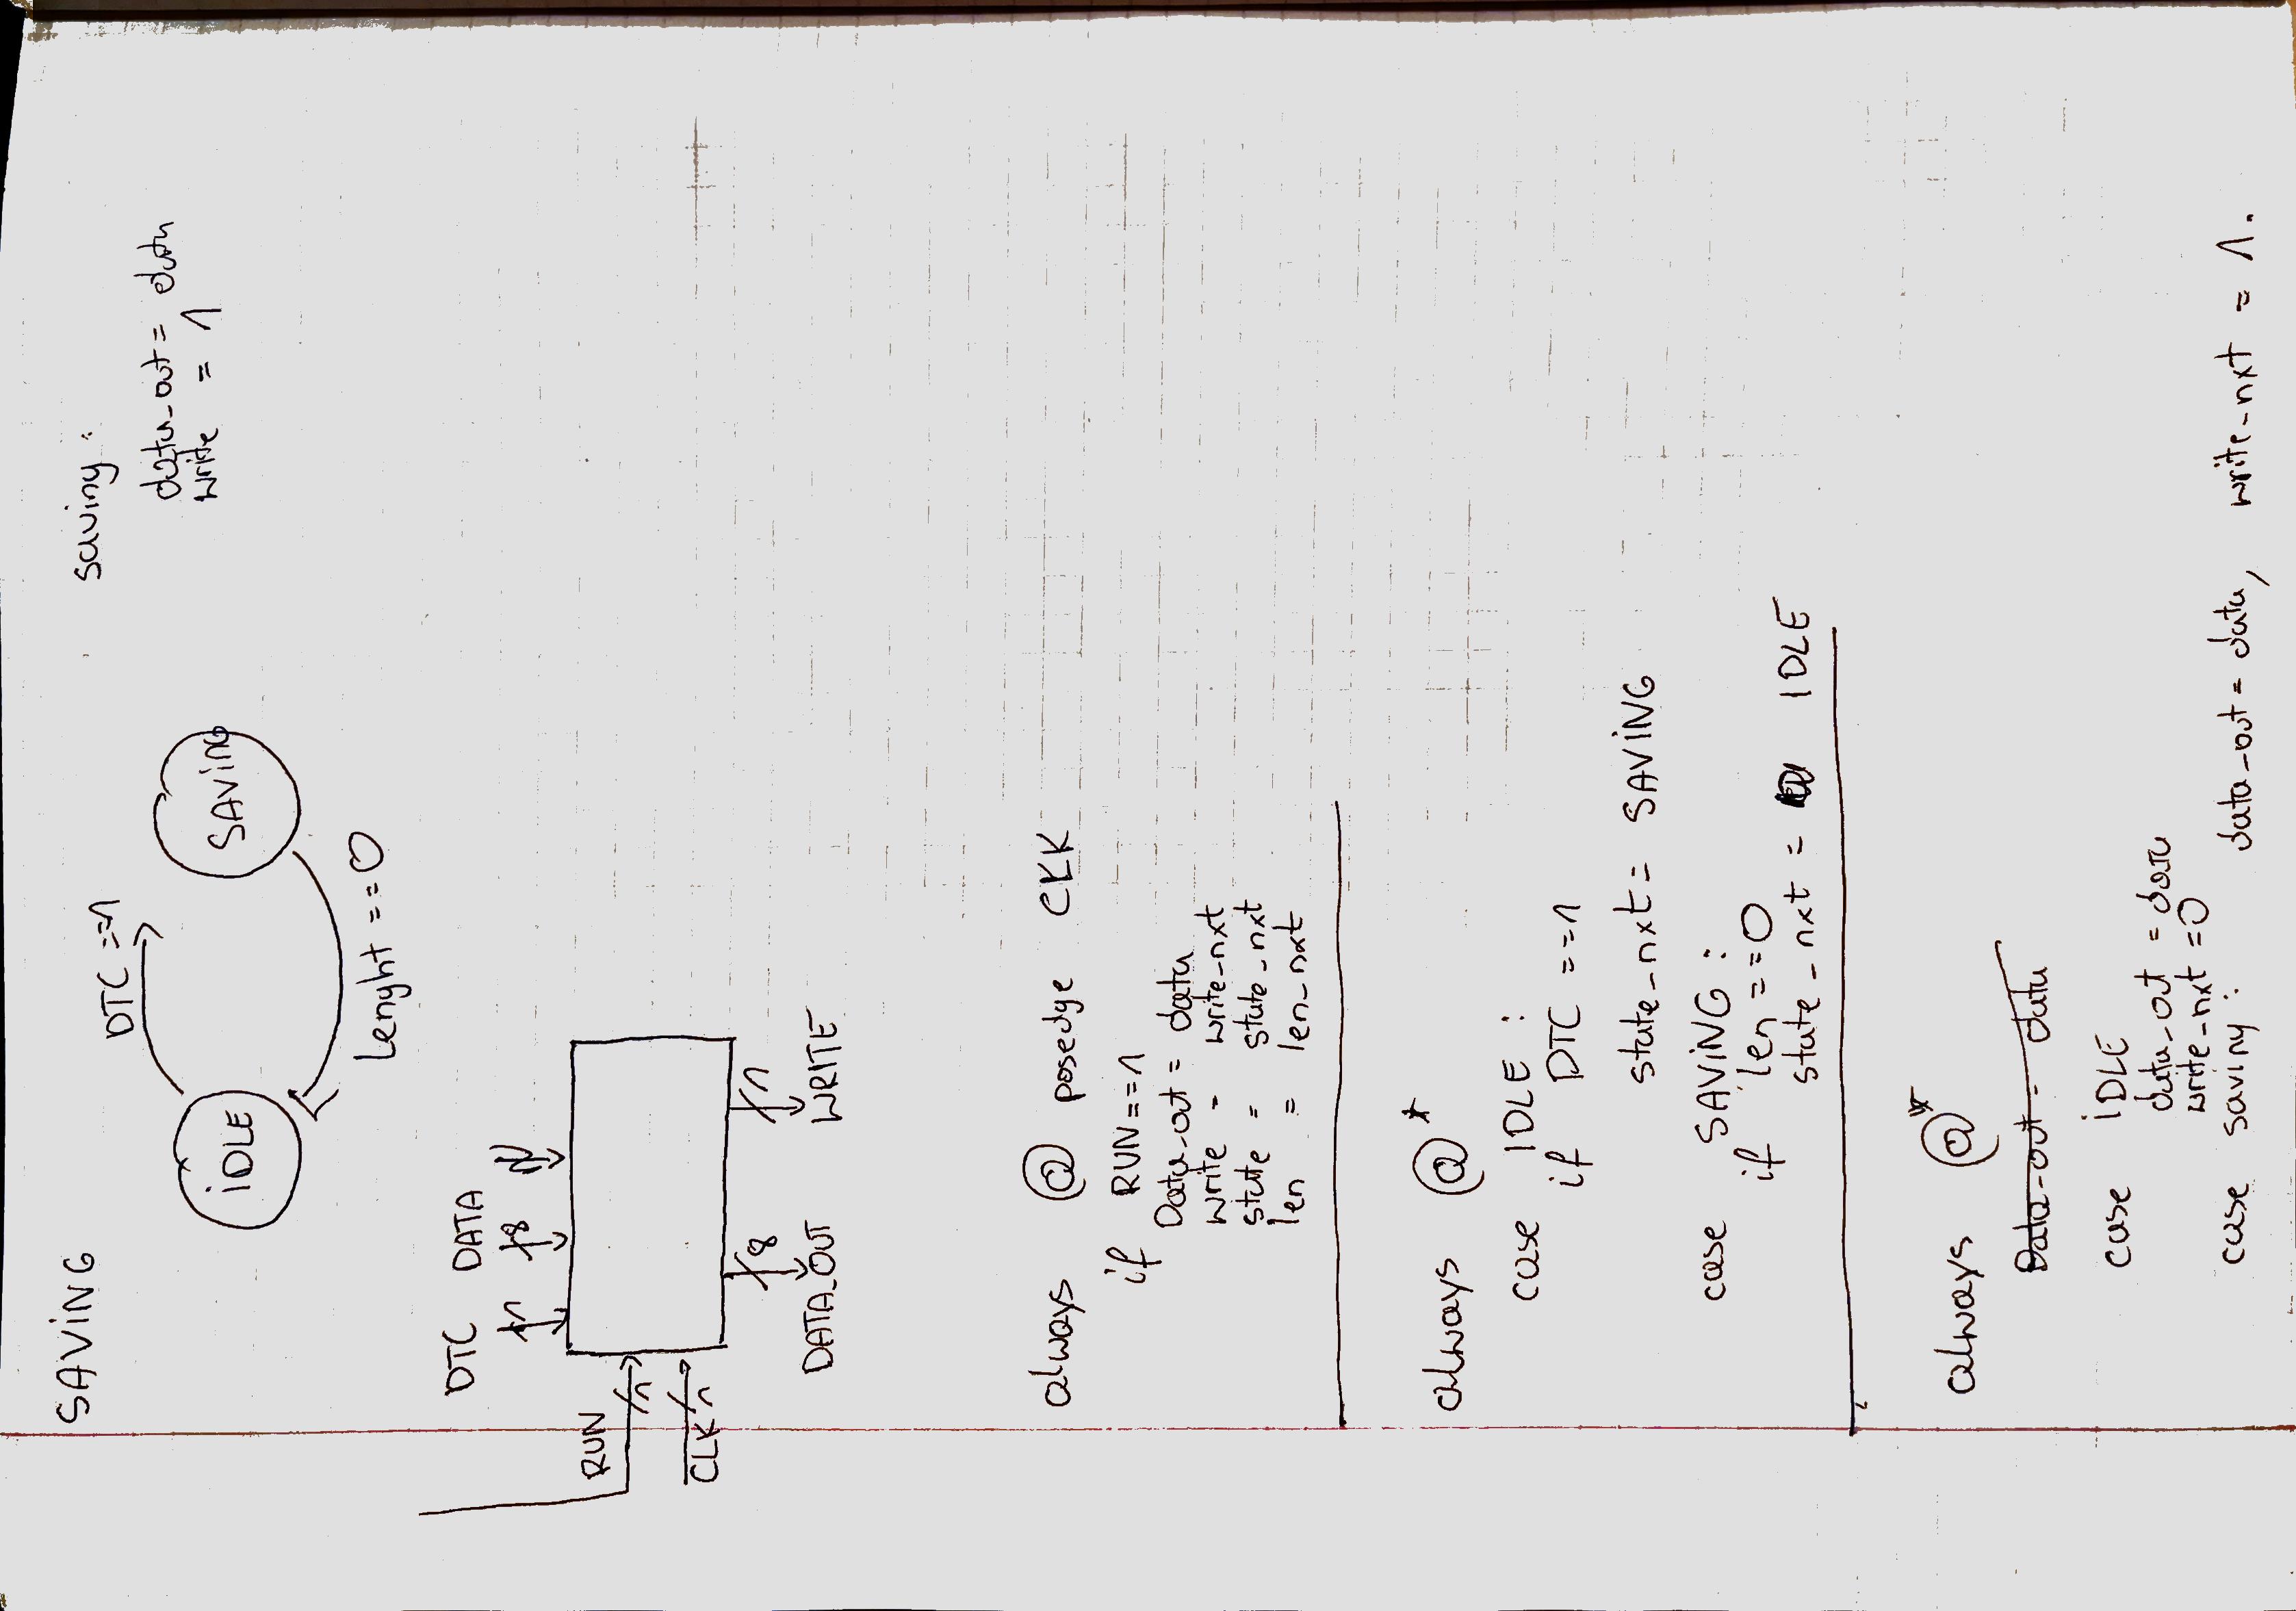 SAVING
saving :
DTC ==1
data_out = data
write = 1
IDLE
SAVING
Lenght ==0
DTC DATA
1 8 N
RUN
1
CLK 1
8 1
DATA_OUT WRITE
always @ posedge CLK
if RUN==1
Data_out = data
write = write_nxt
state = state_nxt
len = len_nxt
always @*
case IDLE :
if DTC ==1
state_nxt = SAVING
case SAVING :
if len ==0
state_nxt = IDLE
always @*
Data_out = data
case IDLE
data_out = data
write_nxt =0
case saving : data_out = data, write_nxt = 1.